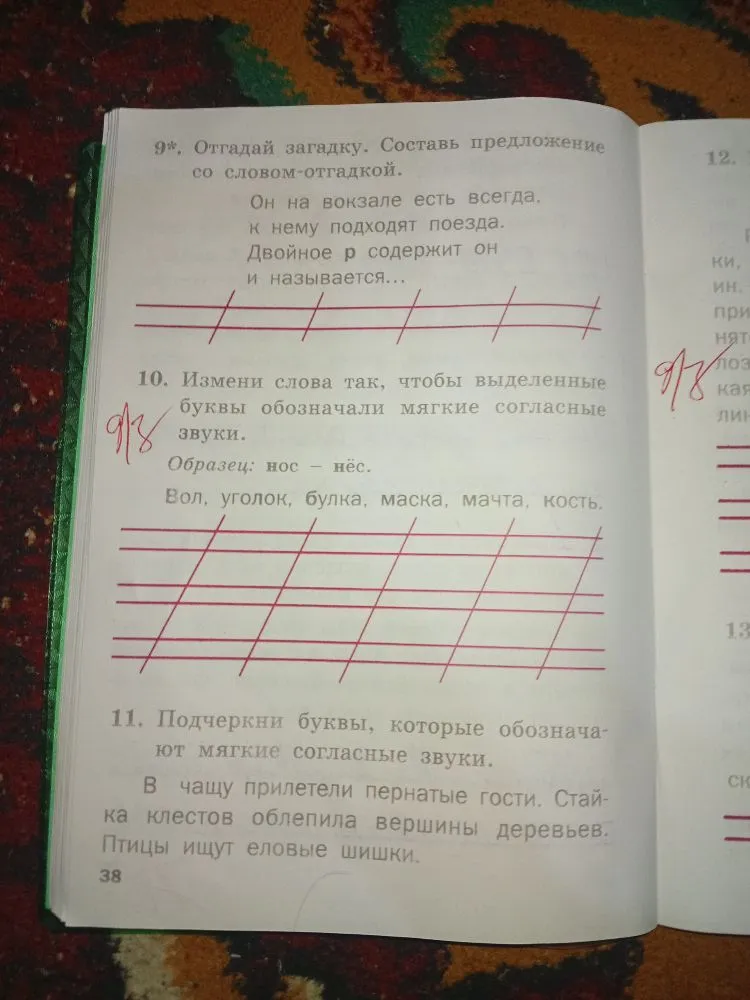 9*. Отгадай загадку. Составь предложение
со словом-отгадкой.
Он на вокзале есть всегда,
к нему подходят поезда.
Двойное р содержит он
и называется...
10. Измени слова так, чтобы выделенные
буквы обозначали мягкие согласные
звуки.
Образец: нос – нёс.
Вол, уголок, булка, маска, мачта, кость.
д/з
11. Подчеркни буквы, которые обознача-
ют мягкие согласные звуки.
В чащу прилетели пернатые гости. Стай-
ка клестов облепила вершины деревьев.
Птицы ищут еловые шишки.
38
12.
ки,
ин.
при
нят
лоз
кая
лин
д/з
13
ск